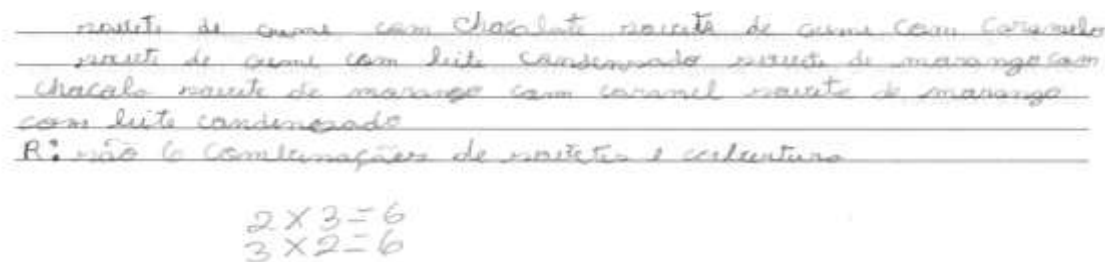 sorvete de creme com chocolate sorvete de creme com caramelo
sorvete de creme com leite condensado sorvete de morango com
chacalo sorvete de morango com caramel sorvete de morango
com leite condensado
R: são 6 combinações de sorvetes e cobertura
2 X 3 = 6
3 X 2 = 6